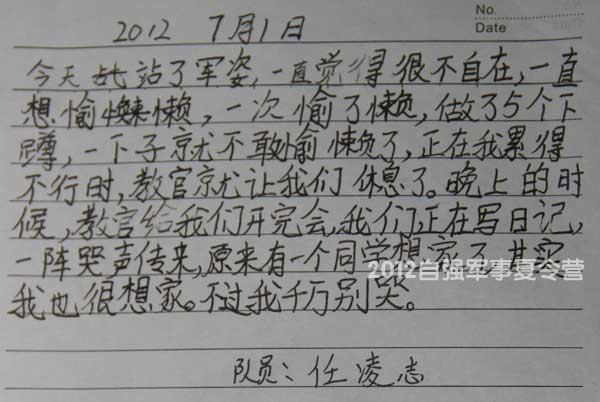 No.
Date
2012 7月1日
今天 站了军姿,一直觉得很不自在,一直
想愉懒,一次愉了懒,做了5个下
蹲,一下子就不敢愉懒了,正在我累得
不行时,教官就让我们休息了。晚上的时
候,教官给我们开完会,我们正在写日记,
一阵哭声传来,原来有一个同学想家了 其实
我也很想家。不过我千万别哭。
2012自强军事夏令营
队员:任凌志